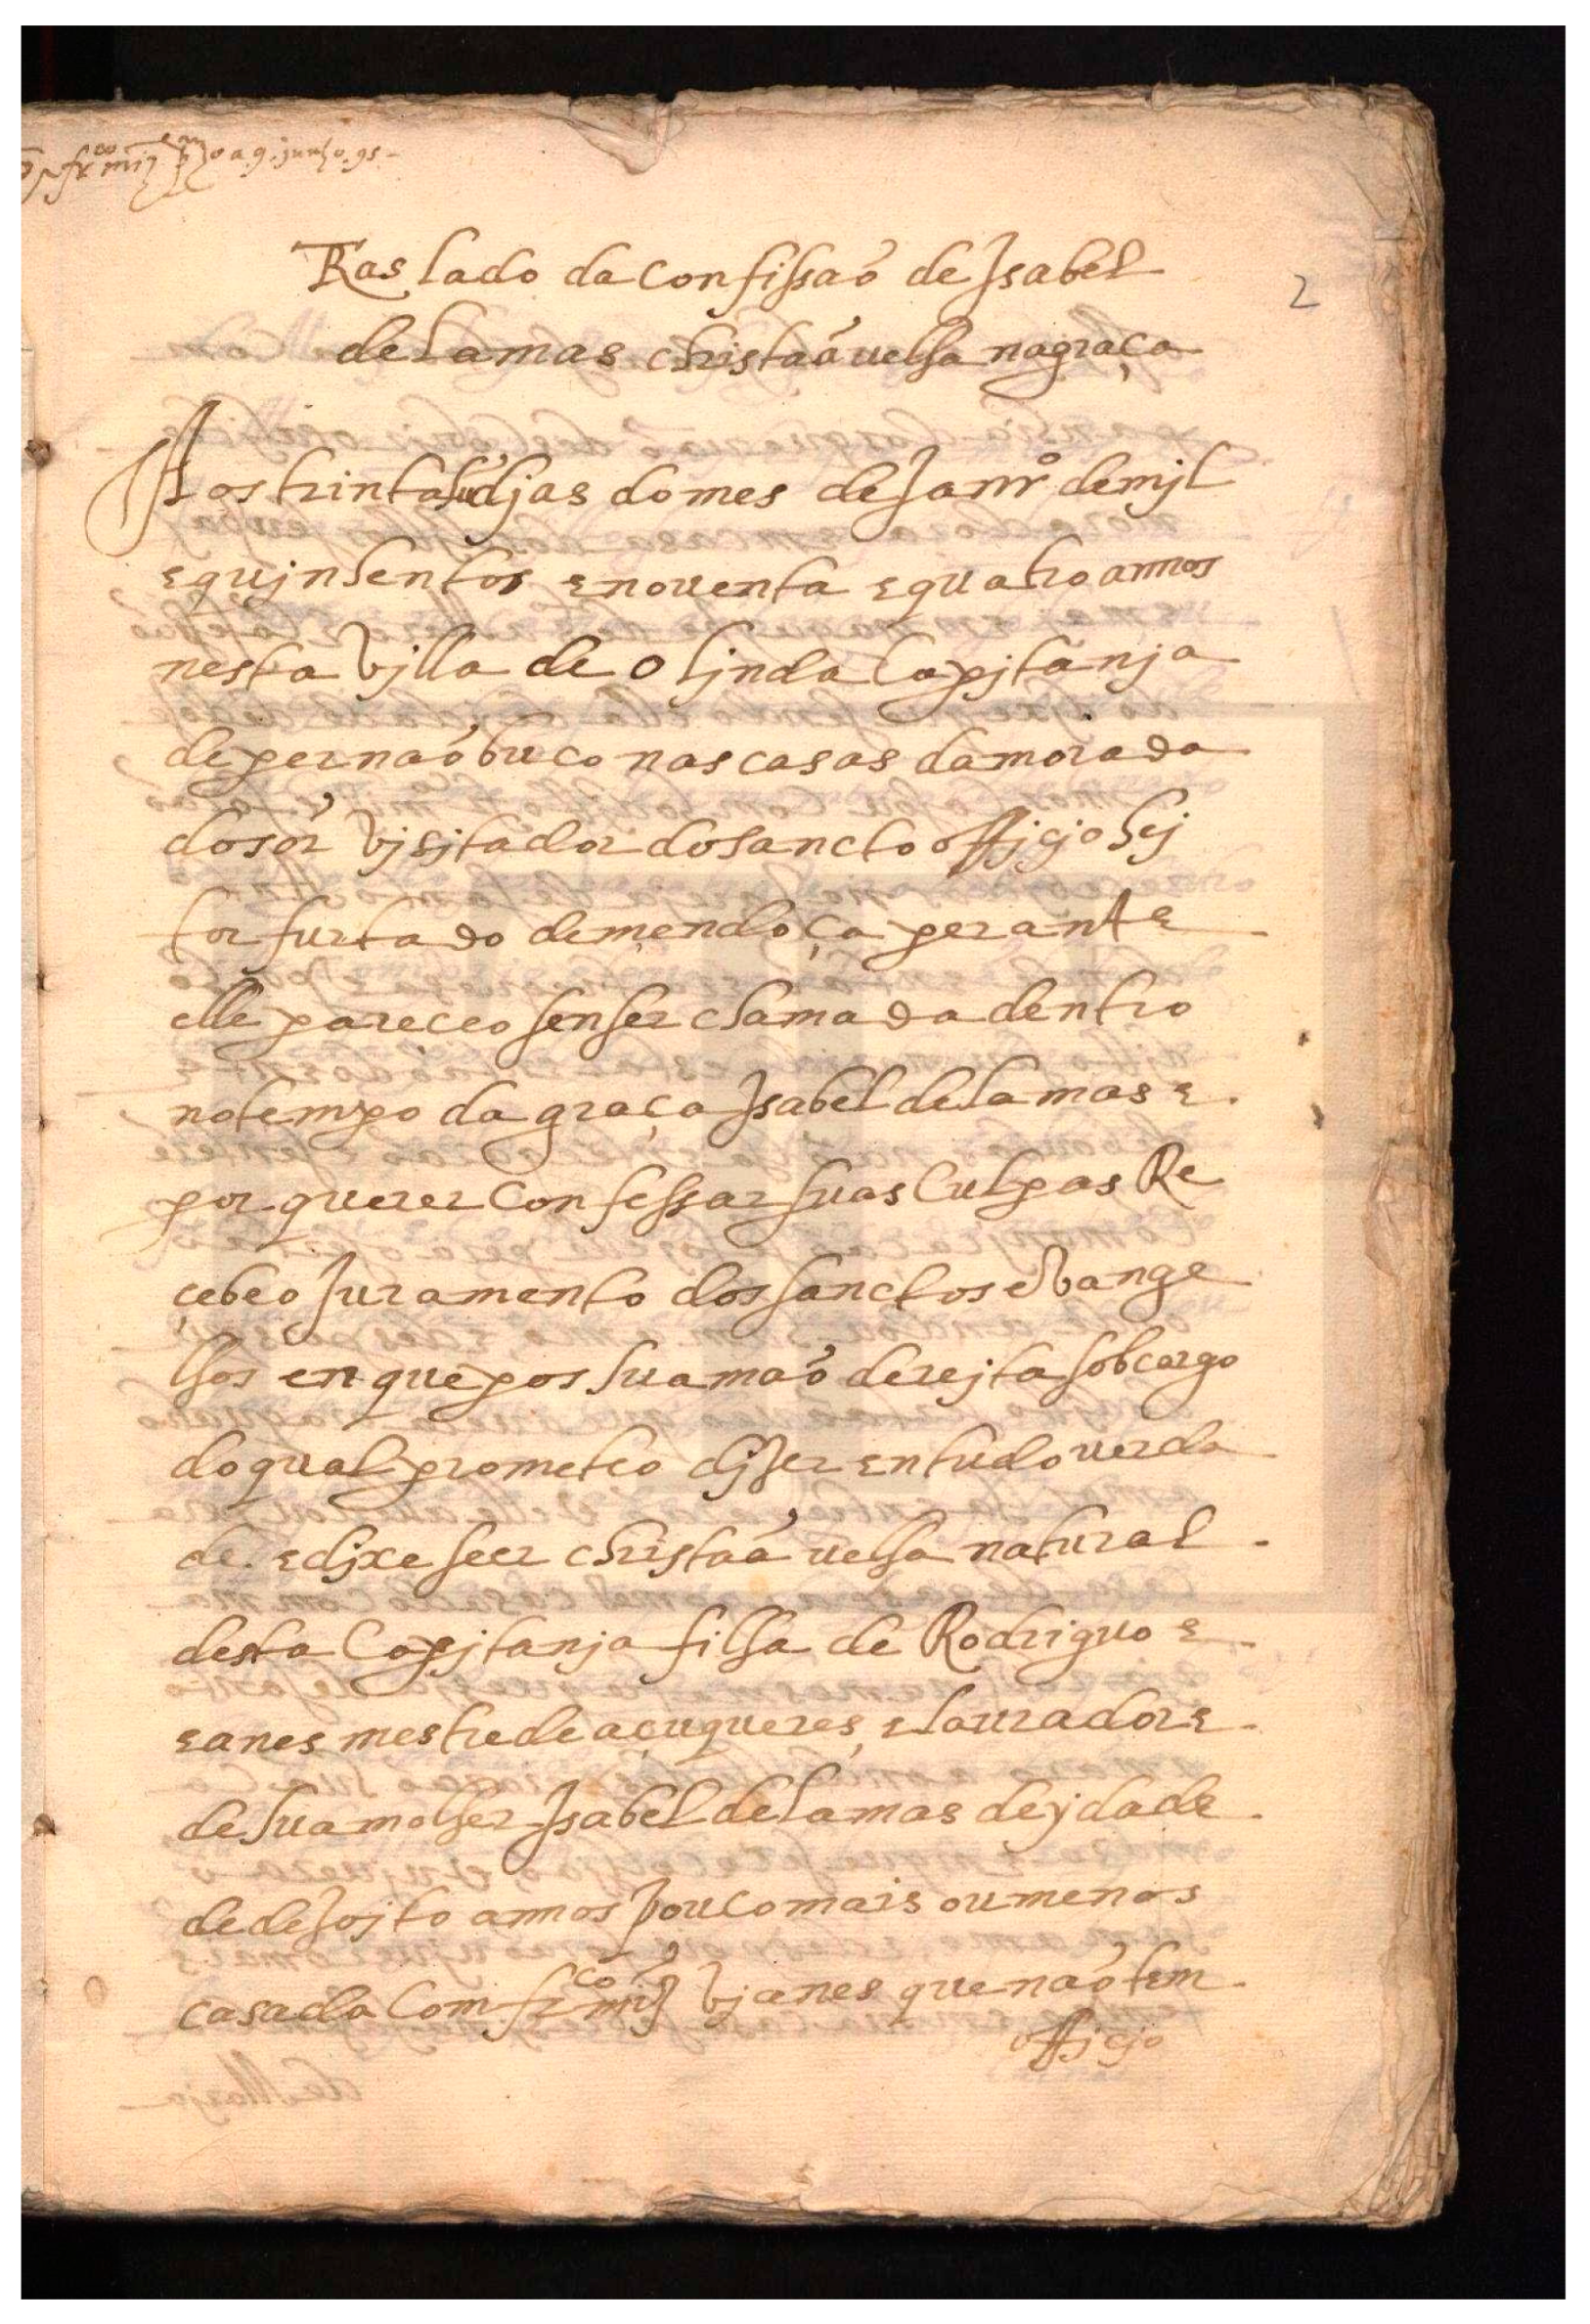 a 9. junho. 95.
2
Raslado da confissaõ de Isabel
de lamas christaã uelha na graça
Aos trinta dias do mes de Janrº de mjl
e qujnhentos e nouenta e quatro annos
nesta Vjlla de Oljnda Capjtanja
de pernaõbuco nas casas da morada
do sor Vjsjtador do sancto officjo hej
tor furtado de mendoça perante
elle pareceo sen ser chamada dentro
no tempo da graça Isabel de lamas e
por querer confessar suas culpas Re
cebeo Juramento dos sanctos eVange
lhos en que pos sua maõ derejta sob cargo
do qual prometeo djzer en tudo uerda
de. e djxe seer christaã uelha natural
desta Capjtanja filha de Rodriguo e
eanes mestre de açuqueres, e laurador e
de sua molher Isabel de lamas de jdade
de dezojto annos pouco mais ou menos
casada com frco miz Vjanes que naõ tem
officjo